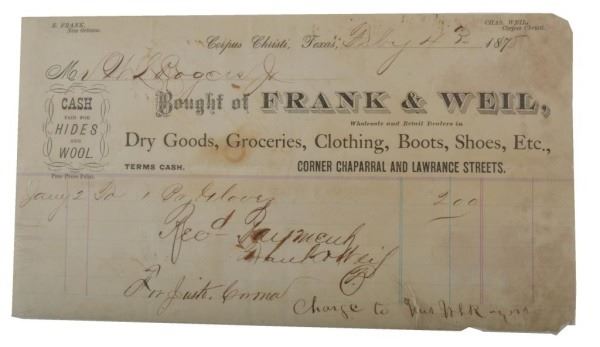 E. FRANK,
New Orleans.
CHAS. WEIL,
Corpus Christi.
Corpus Christi, Texas, 1878
Mr Rogers Jr
CASH
PAID FOR
HIDES
AND
WOOL.
Free Press Print.
Bought of FRANK & WEIL,
Wholesale and Retail Dealers in
Dry Goods, Groceries, Clothing, Boots, Shoes, Etc.,
TERMS CASH.
CORNER CHAPARRAL AND LAWRANCE STREETS.
Jany 2 To 1 Gloves 200
Recd Payment
Frank & Weil
For
Charge to